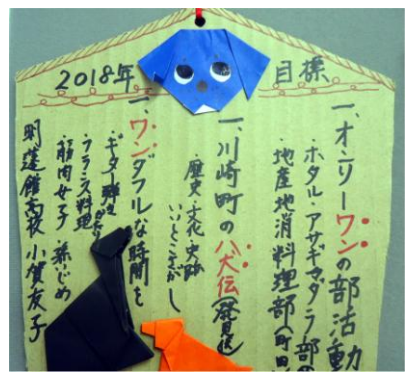 2018年 目標
一、オンリーワンの部活動
ホタル・アサギマダラ部の
・地産地消料理部(町田
一、川崎町の八犬伝(発見伝
・歴史・文化・史跡
いいとこさがし
一、ワンダフルな時間を
・ギター弾き
・フランス料理
・筋肉女子
明蓬館高校 小賀友子